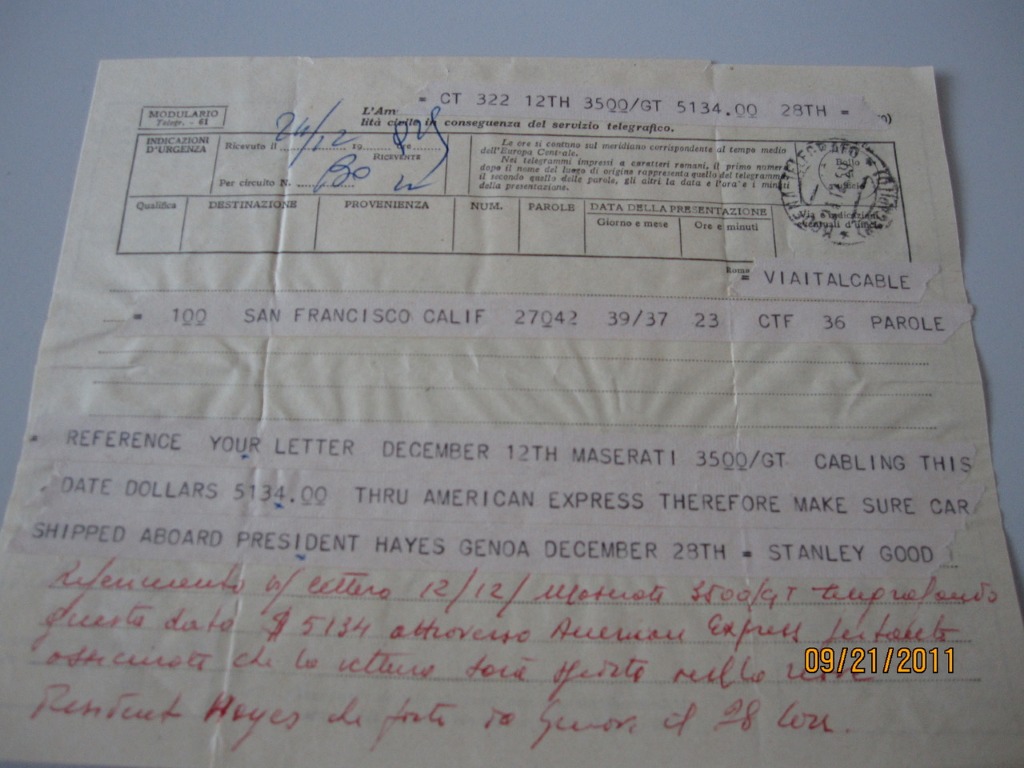 = CT 322 12TH 3500/GT 5134.00 28TH =
MODULARIO
Telegr. - 61
L'Am
lità civile in conseguenza del servizio telegrafico.
INDICAZIONI
D'URGENZA
24/12
Ricevuto il
RICEVENTE
Per circuito N.
Le ore si contano sul meridiano corrispondente al tempo medio
dell'Europa Centrale.
Nei telegrammi impressi a caratteri romani, il primo numero
dopo il nome del luogo di origine rappresenta quello del telegramma
il secondo quello delle parole, gli altri la data e l'ora e i minuti
della presentazione.
Bollo
Ufficio
Qualifica DESTINAZIONE PROVENIENZA NUM. PAROLE DATA DELLA PRESENTAZIONE
Giorno e mese Ore e minuti
Via e indicazioni
eventuali d'ufficio
Roma
= VIAITALCABLE
= 100 SAN FRANCISCO CALIF 27042 39/37 23 CTF 36 PAROLE
= REFERENCE YOUR LETTER DECEMBER 12TH MASERATI 3500/GT CABLING THIS
DATE DOLLARS 5134.00 THRU AMERICAN EXPRESS THEREFORE MAKE SURE CAR
SHIPPED ABOARD PRESIDENT HAYES GENOA DECEMBER 28TH = STANLEY GOOD
Riferimento lettera 12/12/ Maserati 3500/GT telegrafando
questa data $ 5134 attraverso American Express pertanto
assicurate che la vettura sarà spedita nella
President Hayes che parte da Genova il 28
09/21/2011